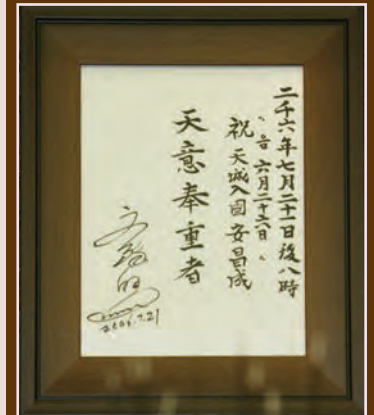 二千六年七月二十一日後八時
〃 음 六月二十六日 〃
祝 天城入國安昌成
天意奉重者
文鮮明
2006.7.21